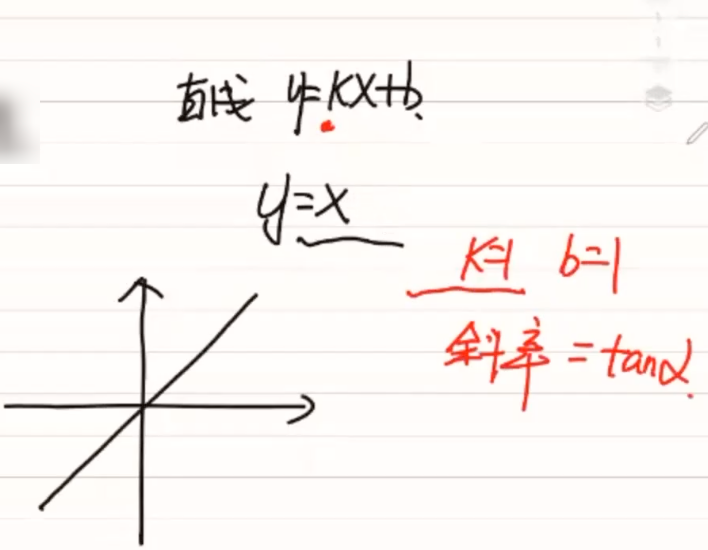 直线 y=kx+b
y=x
k=1 b=1
斜率=tanα